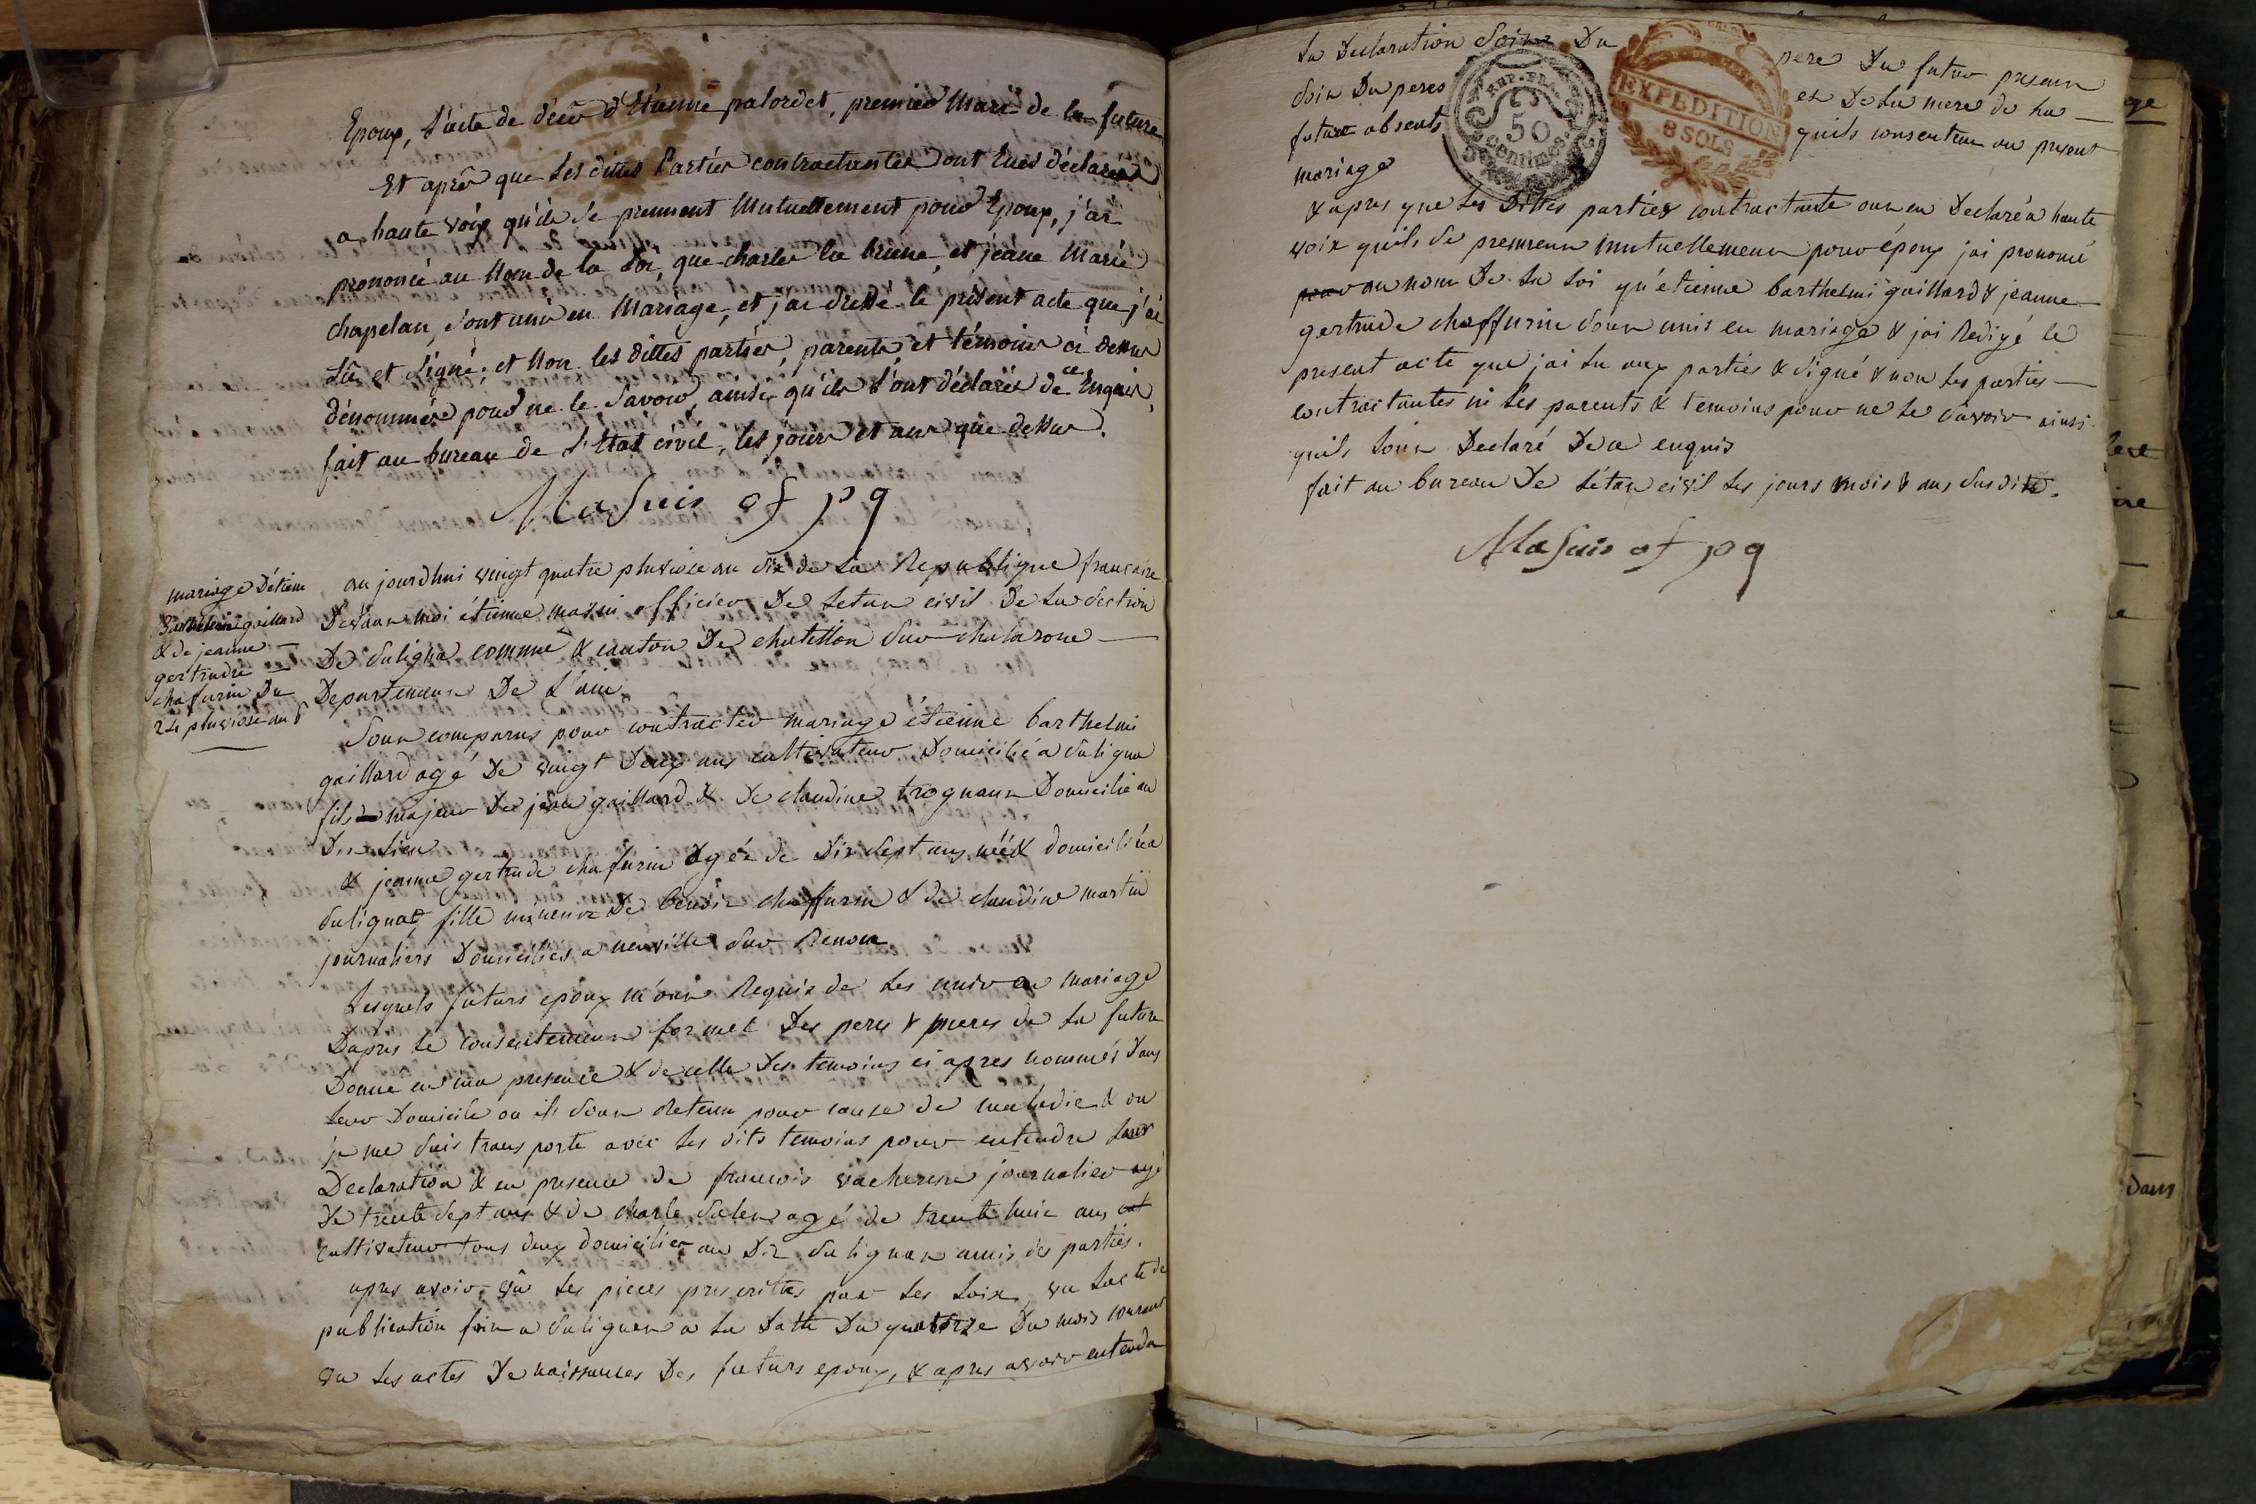 Epoux, l'acte de décès d'Etienne palordet, premier Mari de la future
Et après que les dittes Parties contractantes ont Eues déclarées
a haute voix qu'ils se prennent Mutuellement pour Epoux, j'ai
prononcé au Nom de la Loi, que charles la brune, et jéane Marie
chapelan, sont unis en Mariage, et j'ai dressé le présent acte que j'ai
Lû et signé; et Non les dittes parties, parents, et témoins ci dessus
dénommés pour ne le savoir, ainsi qu'ils l'ont déclarés de ce Enquis,
fait au bureau de L'Etat civil, les jour et an que dessus.
Masuis of pq
mariage D'étienne
Barthelmi gaillard
& de jeanne
gertrude
chafurin Du
24 pluviose an
au jourdhui vingt quatre pluviose an dix de La Republique francaise
Devant moi étienne masui officier De Letat civil De La Section
De Suligna commune & canton De chatillon Sur chalarone
Departement De L'ain
Sont comparus pour contracter mariage étienne barthelmi
gaillard agé De vingt Deux ans cultivateur Domicilié a Suligna
fils majeur De jean gaillard & De claudine trognaux Domicilié au
Dit Lieu
& jeanne gertrude chafurin agée de Dix Sept ans née & domiciliée a
Sulignat fille mineure De benoit chaffurin & de claudine martin
journaliers Domiciliés a neuville Sur Renom
Lesquels futurs epoux m'ont Requis de Les unir en mariage
Dapres Le consentement formel Des peres & meres de La future
Donné en ma presence & de celle Des temoins ci apres nommés Dans
Leur Domicile ou ils Sont Retenu pour cause de maladie & ou
je me Suis transporte avec Les dits temoins pour entendre Leur
Declaration & en presence de francois vacheresse journalier agé
De trente Sept ans & de charle Salen agé de trente huit ans
cultivateur tous deux domiciliés au Dit Sulignat amis des parties.
apres avoir vû Les pieces prescrittes par Les Loix, vu Lacte de
publication fait a Sulignat a La Datte Du quatorze Du mois courant
vu Les actes De naissances Des futurs epoux, & apres avoir entendu
La Declaration Soit Du pere Du futur present
Soit Du peres et De La mere de La
future absents quils consentent au present
mariage
REP. FRA.
50
centimes
EXPEDITION
8 SOLS
& apres que Les Dittes parties contractante ont en Declaré a haute
voix quils Se prennent mutuellement pour époux jai prononcé
au nom De La Loi qu'étienne barthelmi gaillard & jeanne
gertrude chaffurin Sont unis en mariage & jai Redigé Le
present acte que jai Lu aux parties & Signé & non Les parties
contractantes ni Les parents & temoins pour ne Le Savoir ainsi
quils Lont Declaré De a enquis
fait au bureau De Létat civil Les jours mois & ans Susdits.
Masuis of pq
dans